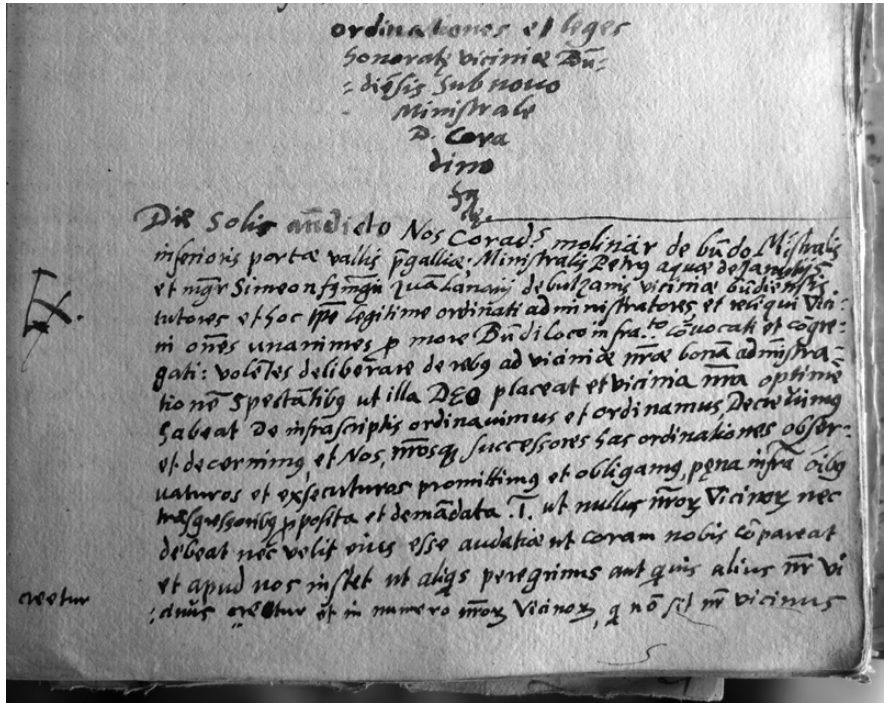 ordinationes et leges
honoratę viciniæ Bū-
-diēsis Sub nouo
Ministrale
D. Cora
dino
Die Solis Nos Corad.s moliniar de būdo Mīstralis
inferioris portæ vallis p̄galliæ; Ministralis Petrus a quæ de
et mḡr Simeon de viciniæ būdiensis
tutores et hoc ip̄e legitime ordinati administratores, et reliqui Vici-
ni oēs unanimes p more Būdi loco infra.to cōuocati et cōgre-
gati: volētes deliberare de rebꝯ ad viciniæ nr̄æ bonā admīstra-
tionē Spectātibꝯ ut illa DEO placeat et vicinia nr̄a optime
habeat De infrascriptis ordinauimus et ordinamus, Decreuimꝯ
et decernimꝯ, et Nos, nr̄osqꝫ successores has ordinationes obser-
uaturos et exsecuturos promittimꝯ et obligamꝯ, pęna infra oībꝯ
trāsgressoribꝯ p̱posita et demādata .I. ut nullus nr̄oꝝ Vicinoꝝ nec
debeat nec velit eius esse audatiæ ut coram nobis cōpareat
et apud nos instet ut aliqs peregrinus aut quis alius nr̄ vi
creetur
:cinus creetur et in numero nr̄oꝝ Vicinoꝝ, q nō sit nr̄ vicinus